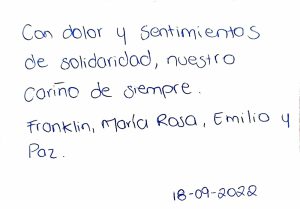 Con dolor y sentimientos
de solidaridad, nuestro
cariño de siempre.
Franklin, María Rosa, Emilio y
Paz.
18-09-2022